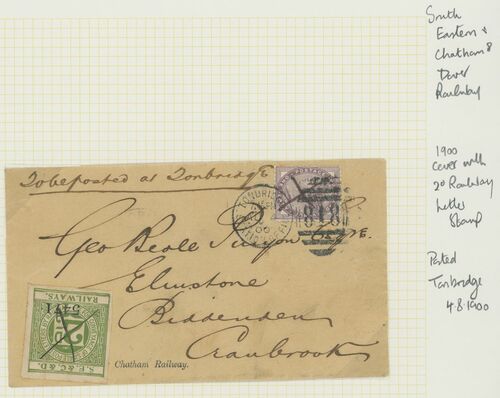 South
Eastern &
Chatham &
Dover
Railway
1900
Cover with
2d Railway
Letter
Stamp
Posted
Tonbridge
4.8.1900
To be posted at Tonbridge
POSTAGE
TONBRIDGE
00
818
Geo Beale
Elmstone
Biddenden
Cranbrook
Chatham Railway.
RAILWAYS.
5471
2
S.E. & C. & D.